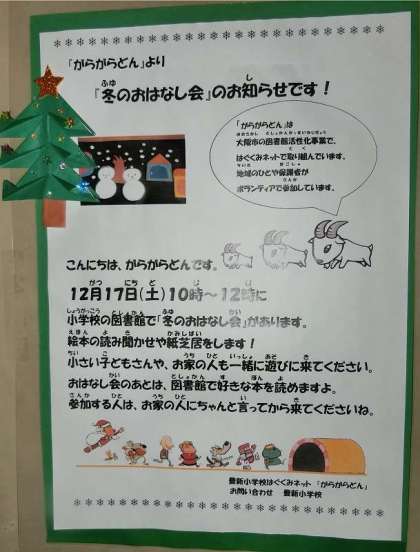 「がらがらどん」より
『冬のおはなし会』のお知らせです!
「がらがらどん」は
大阪市の図書館活性化事業で、
はぐくみネットで取り組んでいます。
地域のひとや保護者が
ボランティアで参加しています。
こんにちは、がらがらどんです。
12月17日(土)10時～12時に
小学校の図書館で「冬のおはなし会」があります。
絵本の読み聞かせや紙芝居をします!
小さい子どもさんや、お家の人も一緒に遊びに来てください。
おはなし会のあとは、図書館で好きな本を読めますよ。
参加する人は、お家の人にちゃんと言ってから来てくださいね。
豊新小学校はぐくみネット 「がらがらどん」
お問い合わせ 豊新小学校